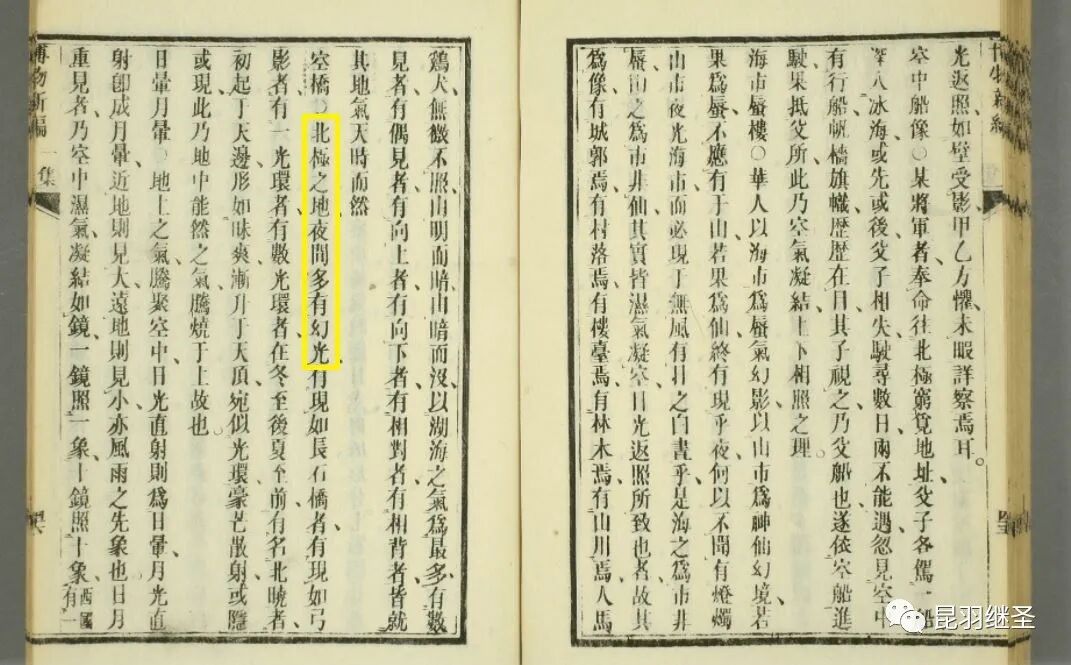 光返照如壁受影甲乙方懼未暇詳察焉耳。
空中船像○某將軍者奉命往北極窮覓地址父子各駕一船
深入冰海或先或後父子相失駛尋數日兩不能遇忽見空中
有行船帆檣旗幟歷歷在目其子視之乃父船也遂依空船進
駛果抵父所此乃空氣凝結上下相照之理。
海市蜃樓○華人以海市爲蜃氣幻影以山市爲神仙幻境若
果爲蜃不應有于山若果爲仙終有現乎夜何以不聞有燈燭
山市夜光海市而必現于無風有日之白晝乎是海之爲市非
蜃山之爲市非仙其實皆濕氣凝空日光返照所致也者故其
爲像有城郭焉有村落焉有樓臺焉有林木焉有山川焉人馬
鷄犬無微不照山明而暗山暗而沒以湖海之氣爲最多有數
見者有偶見者有向上者有向下者有相對者有相背者皆就
其地氣天時而然
空橋○北極之地夜間多有幻光有現如長石橋者有現如弓
影者有一光環者有數光環者在冬至後夏至前有名北曉者
初起于天邊形如昧爽漸升于天頂宛似光環豪芒散射或隱
或現此乃地中能然之氣騰燒于上故也
日暈月暈○地上之氣騰聚空中日光直射則爲日暈月光直
射卽成月暈近地則見大遠地則見小亦風雨之先象也日月
重見者乃空中濕氣凝結如鏡一鏡照一象十鏡照十象西國有一
博物新編 一集
昆羽继圣